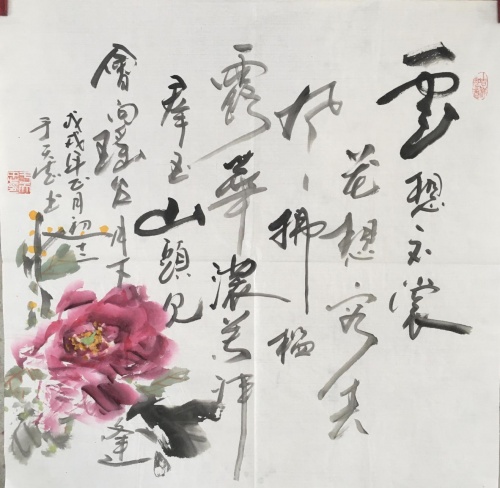 雲想衣裳
花想容春
風拂檻
露華濃若非
羣玉山頭見
會向瑤台月下逢
戊戌年正月初
于天
書